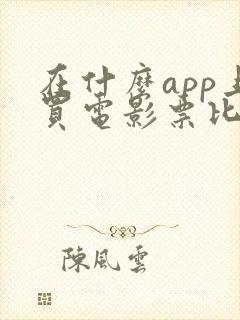 在什麼app上
買電影票比
陳風雲